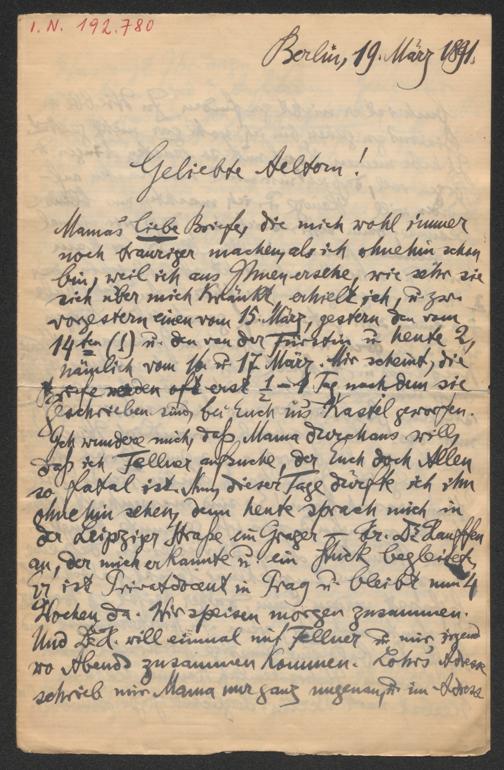 I. N. 192.780
Berlin, 19. März 1891.
Geliebte Aeltern!
Mama's liebe Briefe, die mich wohl immer
noch trauriger machen, als ich ohnehin schon
bin, weil ich aus Ihnen ersehe, wie sehr sie
sich über mich kränkt, erhielt ich, u. zw.
vorgestern einen vom 15. März, gestern den vom
14ten (!) u. den von der Fürstin u. heute 2,
nämlich vom 16. u. 17. März. Mir scheint, die
Briefe werden oft erst 1 Tag nach dem sie
geschrieben sind, bei Euch in's Kastel geworfen.
Ich wundere mich, daß Mama durchaus will,
daß ich Fellner aufsuche, der Euch doch Allen
so fatal ist. Nun, dieser Tage dürfte ich ihn
ohnehin sehen, denn heute sprach mich in
der Leipziger Straße ein Prager — Hr. Dr.
an, der mich erkannte u. ein Stück begleitet,
er ist Privatdocent in Prag u. bleibt nun 4
Wochen da. Wir speisen morgen zusammen.
Und Dr. K. will einmal mit Fellner u. mir irgend
wo Abends zusammen kommen. Adresse
schrieb mir Mama nur ganz ungenau, u. im Adress